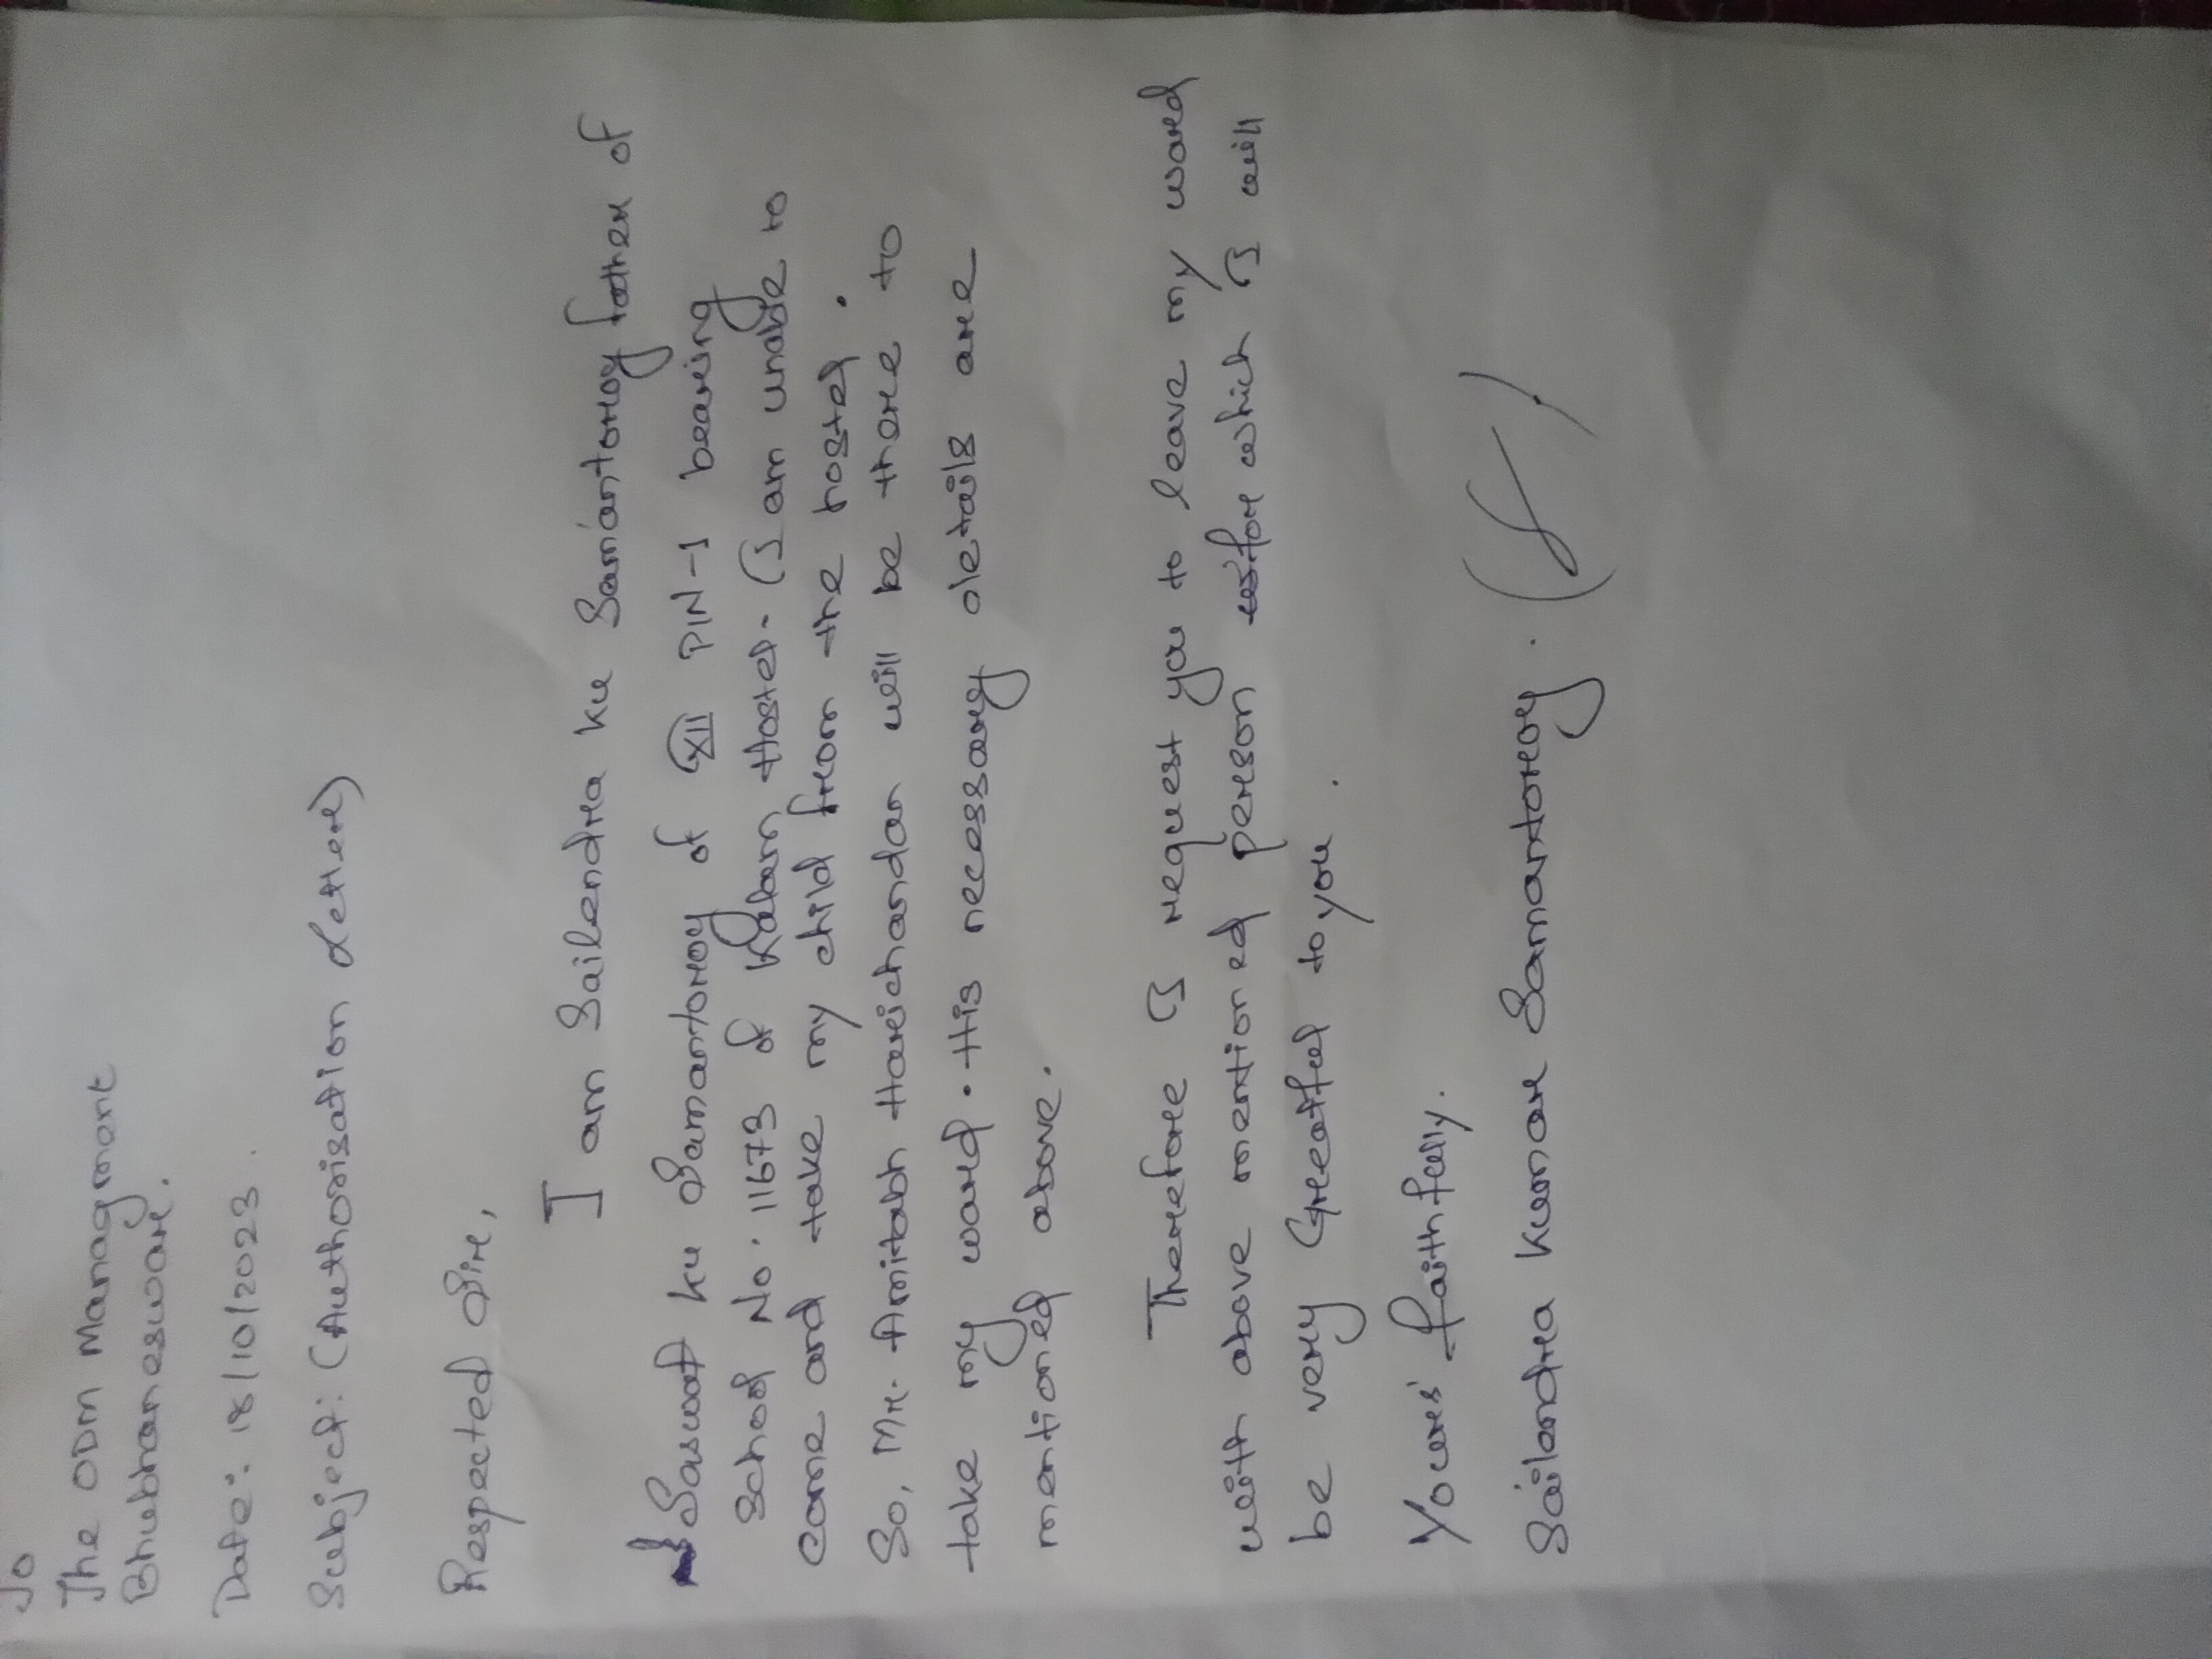 To
The ODM Managment
Bhubhaneswar.
Date: 18/10/2023.
Subject: (Authorisation Letter)
Respected Sir,
I am Sailendra ku Samantoray father of
Saswat ku Samantoray of XII PIN-1 bearing
School No. 11673 of Kalam Hostel. I am unable to
come and take my child from the hostel.
So, Mr. Amitabh Harichandan will be there to
take my ward. His necessary details are
mentioned above.
Therefore I request you to leave my ward
with above mentioned person for which I will
be very Greatful to you.
Yours' faithfully.
Sailendra kumar Samantoray.